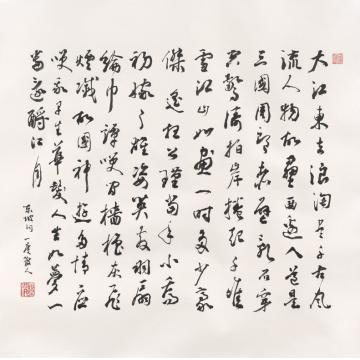 大江東去浪淘盡千古風
流人物故壘西邊人道是
三國周郎赤壁亂石穿
空驚濤拍岸捲起千堆
雪江山如畫一時多少豪
傑遙想公瑾當年小喬
初嫁了雄姿英發羽扇
綸巾譚咲間檣櫓灰飛
煙滅故國神遊多情應
咲我早生華髮人生如夢一
尊還酹江月
東坡詞